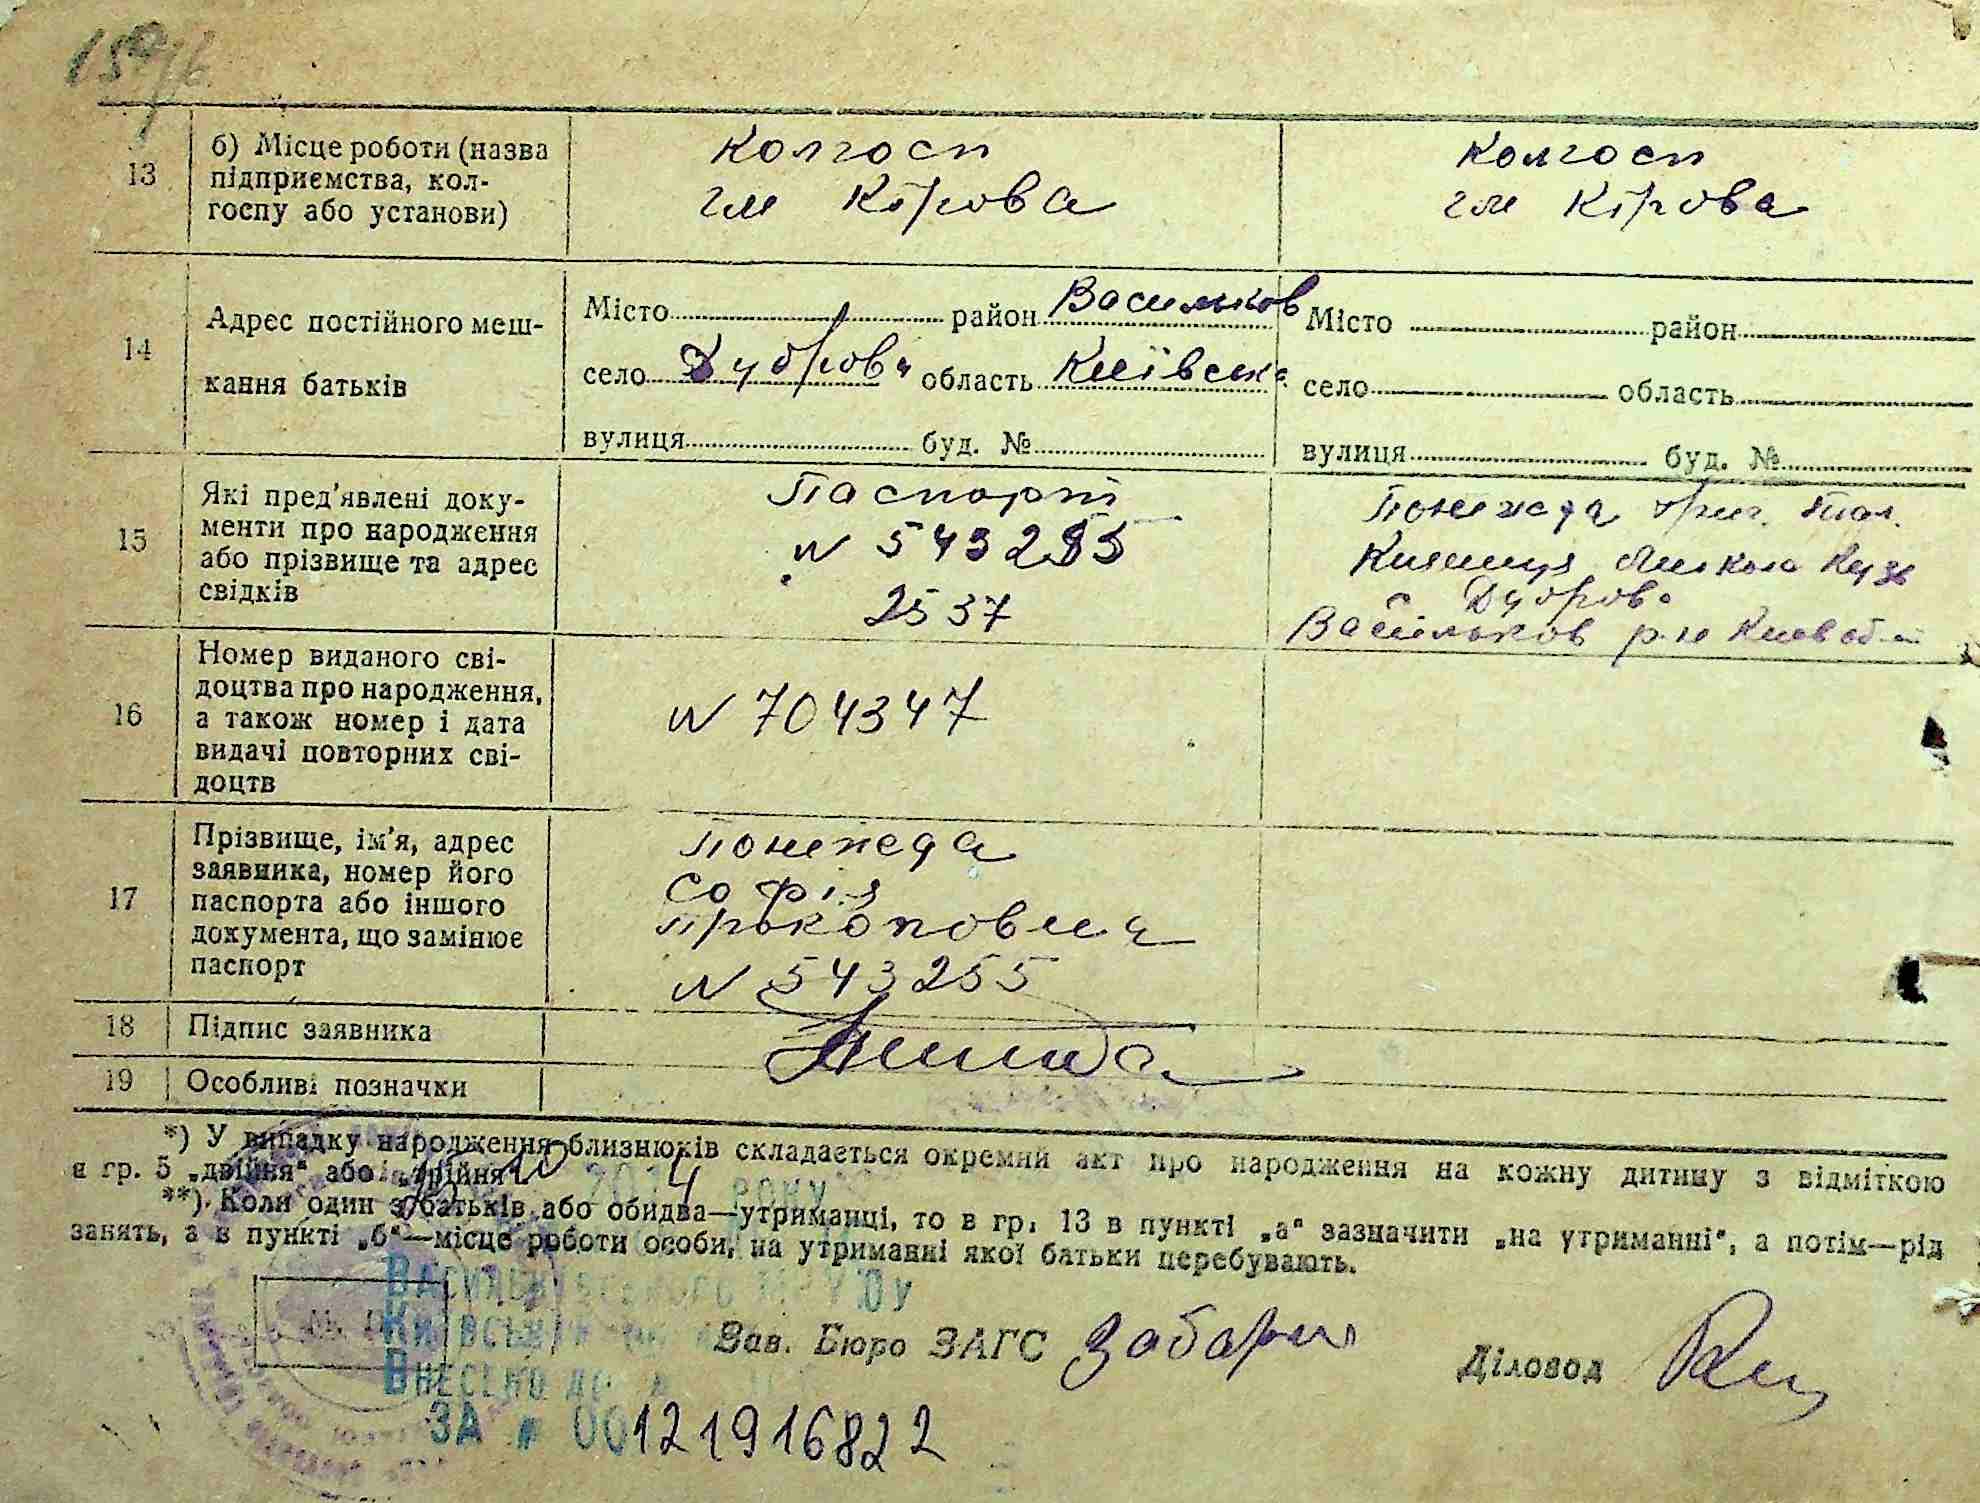 13
б) Місце роботи (назва
підприємства, кол-
госпу або установи)
колгосп
ім Кірова
колгосп
ім Кірова
14
Адрес постійного меш-
кання батьків
Місто район Васильков
село Дуброва область Київська
вулиця буд. №
Місто район
село область
вулиця буд. №
15
Які пред'явлені доку-
менти про народження
або прізвище та адрес
свідків
Паспорт
N 543255
2537
Понежеда
Микола
Дуброва
Васильков р-н Киев
16
Номер виданого сві-
доцтва про народження,
а також номер і дата
видачі повторних сві-
доцтв
N 704347
17
Прізвище, ім'я, адрес
заявника, номер його
паспорта або іншого
документа, що замінює
паспорт
Понежеда
Софія
Прокоповна
N 543255
18
Підпис заявника
19
Особливі позначки
*) У випадку народження близнюків складається окремий акт про народження на кожну дитину з відміткою
в гр. 5 „двійня“ або „трійня“.
2014 РОКУ
**) Коли один з батьків або обидва—утриманці, то в гр. 13 в пункті „а“ зазначити „на утриманні“, а потім—рід
занять, а в пункті „б“—місце роботи особи, на утриманні якої батьки перебувають.
ВАСИЛЬКІВСЬКОГО МРУЮ
КИЇВСЬКІЙ
ВНЕСЕНО ДО
ЗА № 00121916822
Зав. Бюро ЗАГС
Діловод